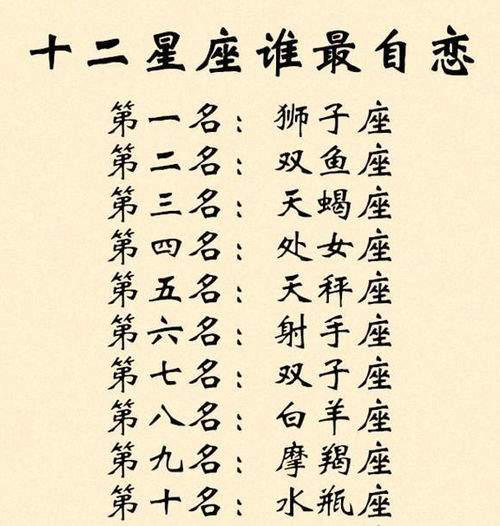 十二星座谁最自恋
第一名：狮子座
第二名：双鱼座
第三名：天蝎座
第四名：处女座
第五名：天秤座
第六名：射手座
第七名：双子座
第八名：白羊座
第九名：摩羯座
第十名：水瓶座